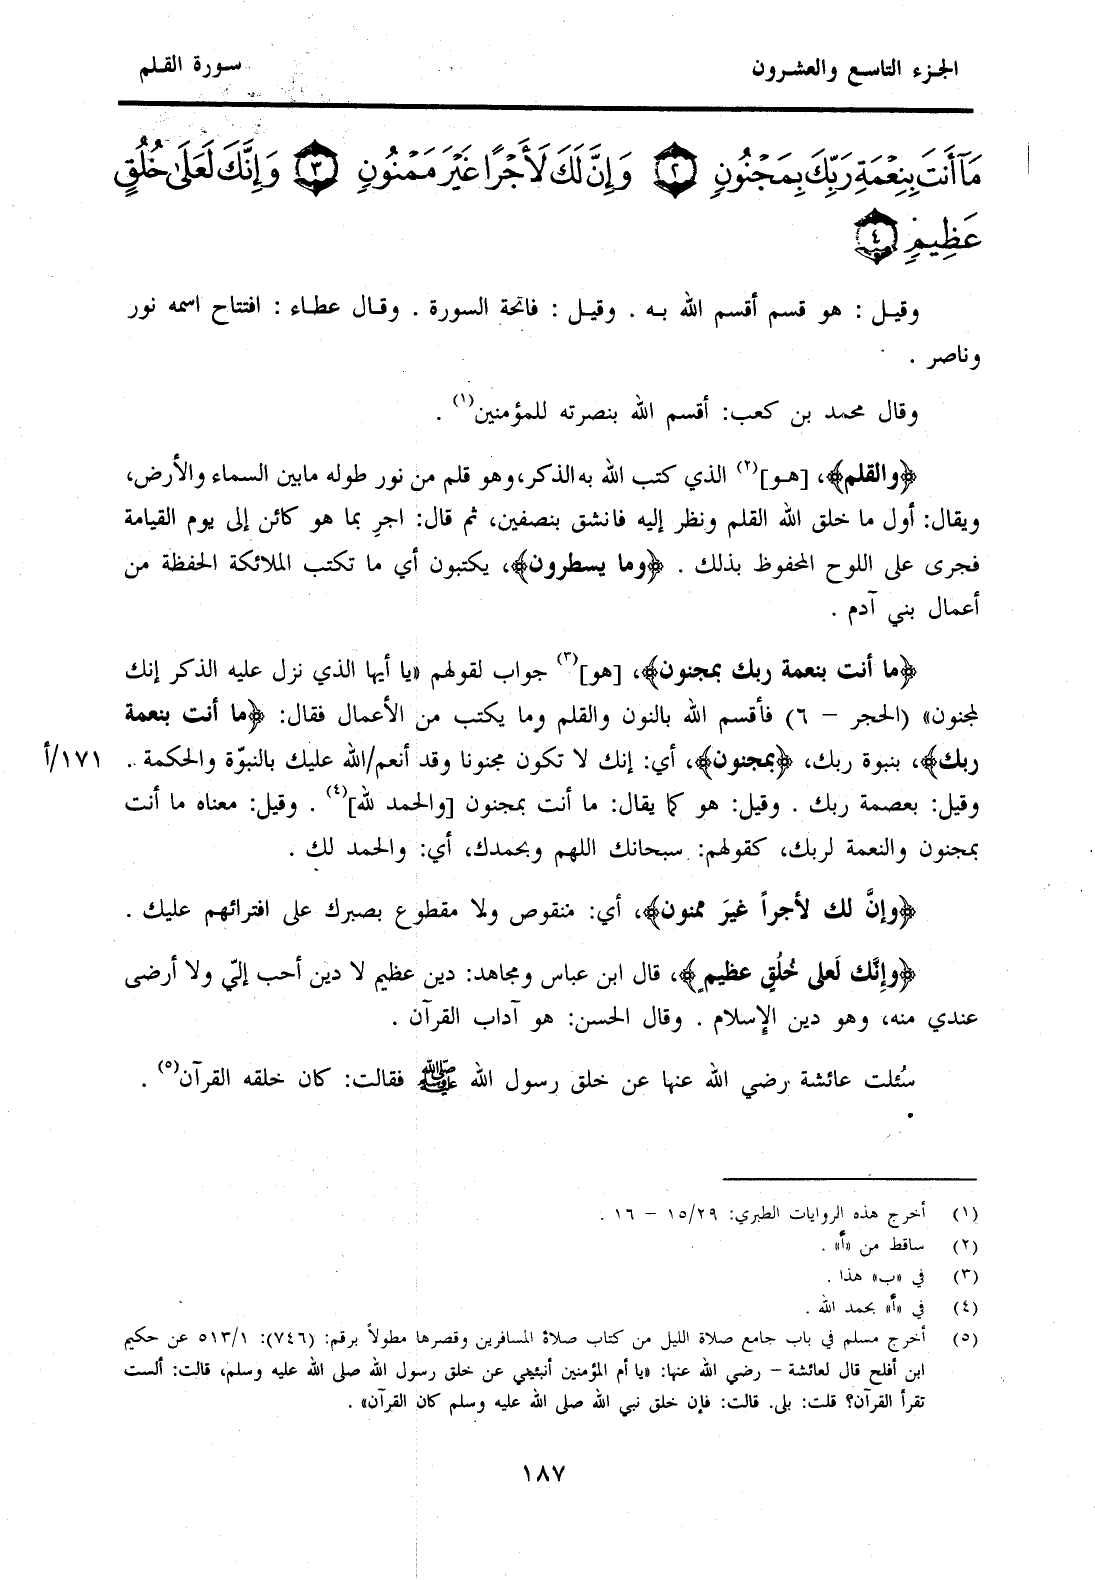 الجزء التاسع والعشرون
سورة القلم
مَآ أَنتَ بِنِعْمَةِ رَبِّكَ بِمَجْنُونٍ ٢ وَإِنَّ لَكَ لَأَجْرًا غَيْرَ مَمْنُونٍ ٣ وَإِنَّكَ لَعَلَىٰ خُلُقٍ
عَظِيمٍ ٤
وقيل : هو قسم أقسم الله به . وقيل : فاتحة السورة . وقال عطاء : افتتاح اسمه نور
وناصر .
وقال محمد بن كعب: أقسم الله بنصرته للمؤمنين(١) .
﴿والقلم﴾، [هو](٢) الذي كتب الله به الذكر، وهو قلم من نور طوله مابين السماء والأرض،
ويقال: أول ما خلق الله القلم ونظر إليه فانشق بنصفين، ثم قال: اجرِ بما هو كائن إلى يوم القيامة
فجرى على اللوح المحفوظ بذلك . ﴿وما يسطرون﴾، يكتبون أي ما تكتب الملائكة الحفظة من
أعمال بني آدم .
﴿ما أنت بنعمة ربك بمجنون﴾، [هو](٣) جواب لقولهم «يا أيها الذي نزل عليه الذكر إنك
لمجنون» (الحجر – ٦) فأقسم الله بالنون والقلم وما يكتب من الأعمال فقال: ﴿ما أنت بنعمة
ربك﴾، بنبوة ربك، ﴿بمجنون﴾، أي: إنك لا تكون مجنونا وقد أنعم/الله عليك بالنبوّة والحكمة . ١٧١/أ
وقيل: بعصمة ربك . وقيل: هو كما يقال: ما أنت بمجنون [والحمد لله](٤) . وقيل: معناه ما أنت
بمجنون والنعمة لربك، كقولهم: سبحانك اللهم وبحمدك، أي: والحمد لك .
﴿وإنَّ لك لأجراً غيرَ ممنون﴾، أي: منقوص ولا مقطوع بصبرك على افترائهم عليك .
﴿وإنَّك لَعلى خُلُقٍ عظيمٍ﴾، قال ابن عباس ومجاهد: دين عظيم لا دين أحب إليّ ولا أرضى
عندي منه، وهو دين الإسلام . وقال الحسن: هو آداب القرآن .
سُئلت عائشة رضي الله عنها عن خلق رسول الله ﷺ فقالت: كان خلقه القرآن(٥) .
(١) أخرج هذه الروايات الطبري: ١٥/٢٩ – ١٦ .
(٢) ساقط من «أ» .
(٣) في «ب» هذا .
(٤) في «أ» بحمد الله .
(٥) أخرج مسلم في باب جامع صلاة الليل من كتاب صلاة المسافرين وقصرها مطولاً برقم: (٧٤٦): ٥١٣/١ عن حكيم
ابن أفلح قال لعائشة – رضي الله عنها: «يا أم المؤمنين أنبئيني عن خلق رسول الله صلى الله عليه وسلم، قالت: ألست
تقرأ القرآن؟ قلت: بلى. قالت: فإن خلق نبي الله صلى الله عليه وسلم كان القرآن» .
١٨٧